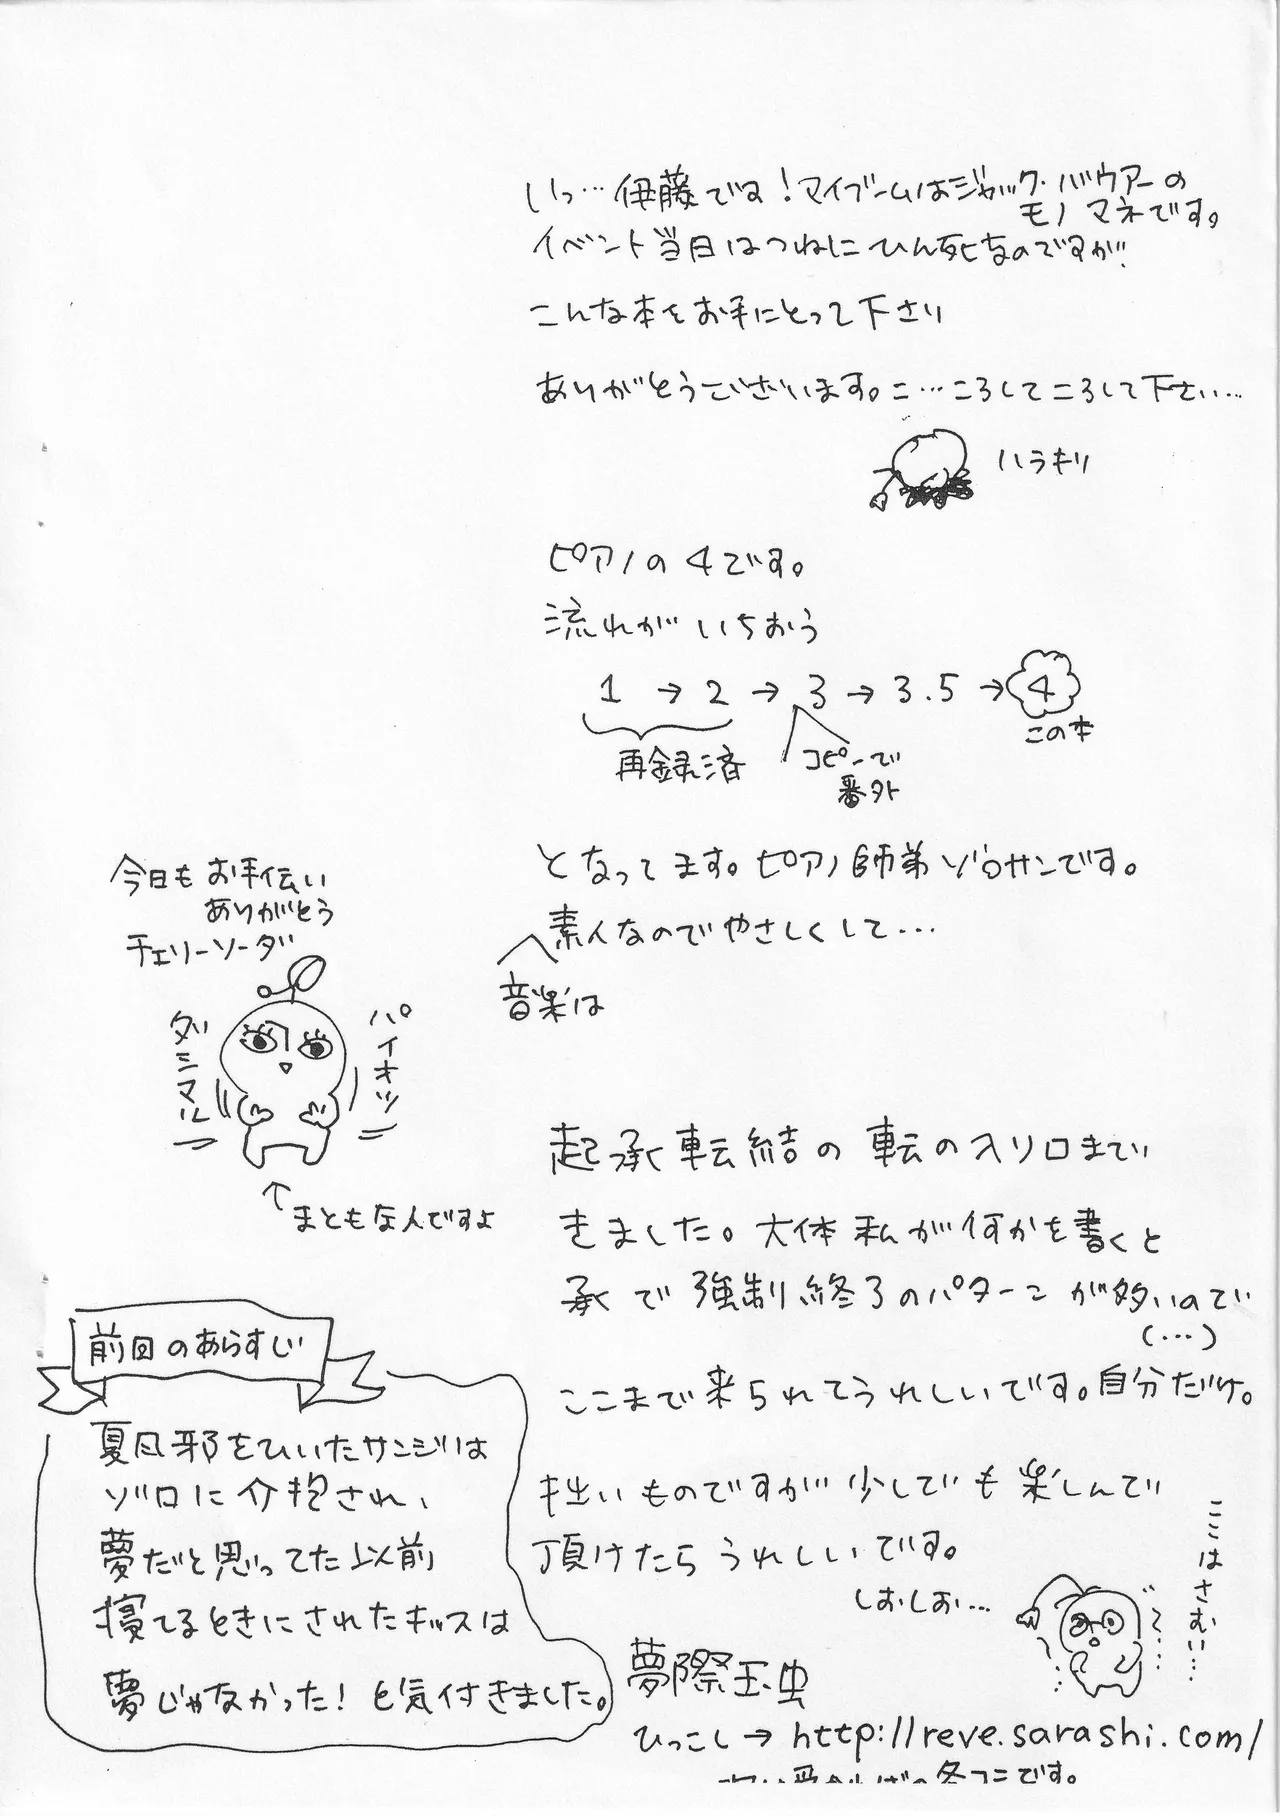 いっ…伊藤です！マイブームはジャック・バウアーの
モノマネです。
イベント当日はつねにひん死なのですが!!
こんな本をお手にとって下さり
ありがとうございます。こ…ころしてころして下さい…
ハラキリ
ピアノの4です。
流れがいちおう
1 → 2 → 3 → 3.5 → 4
この本
再録済
コピーで
番外
となってます。ピアノ師弟ゾロサンです。
素人なのでやさしくして…
音楽は
今日もお手伝い
ありがとう
チェリーソーダ
パイオツ
ダミマル
↑まともな人ですよ
起承転結の転の入り口まで
きました。大体私が何かを書くと
承で強制終了のパターンが多いので
(…)
ここまで来られてうれしいです。自分だけ。
拙いものですが少しでも楽しんで
頂けたらうれしいです。
しおしお…
ここはさむい…
前回のあらすじ
夏風邪をひいたサンジは
ゾロに介抱され、
夢だと思ってた以前
寝てるときにされたキッスは
夢じゃなかった！と気付きました。
夢際玉虫
ひっこし→http://reve.sarashi.com/